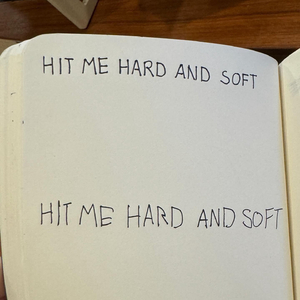 HIT ME HARD AND SOFT
HIT ME HARD AND SOFT